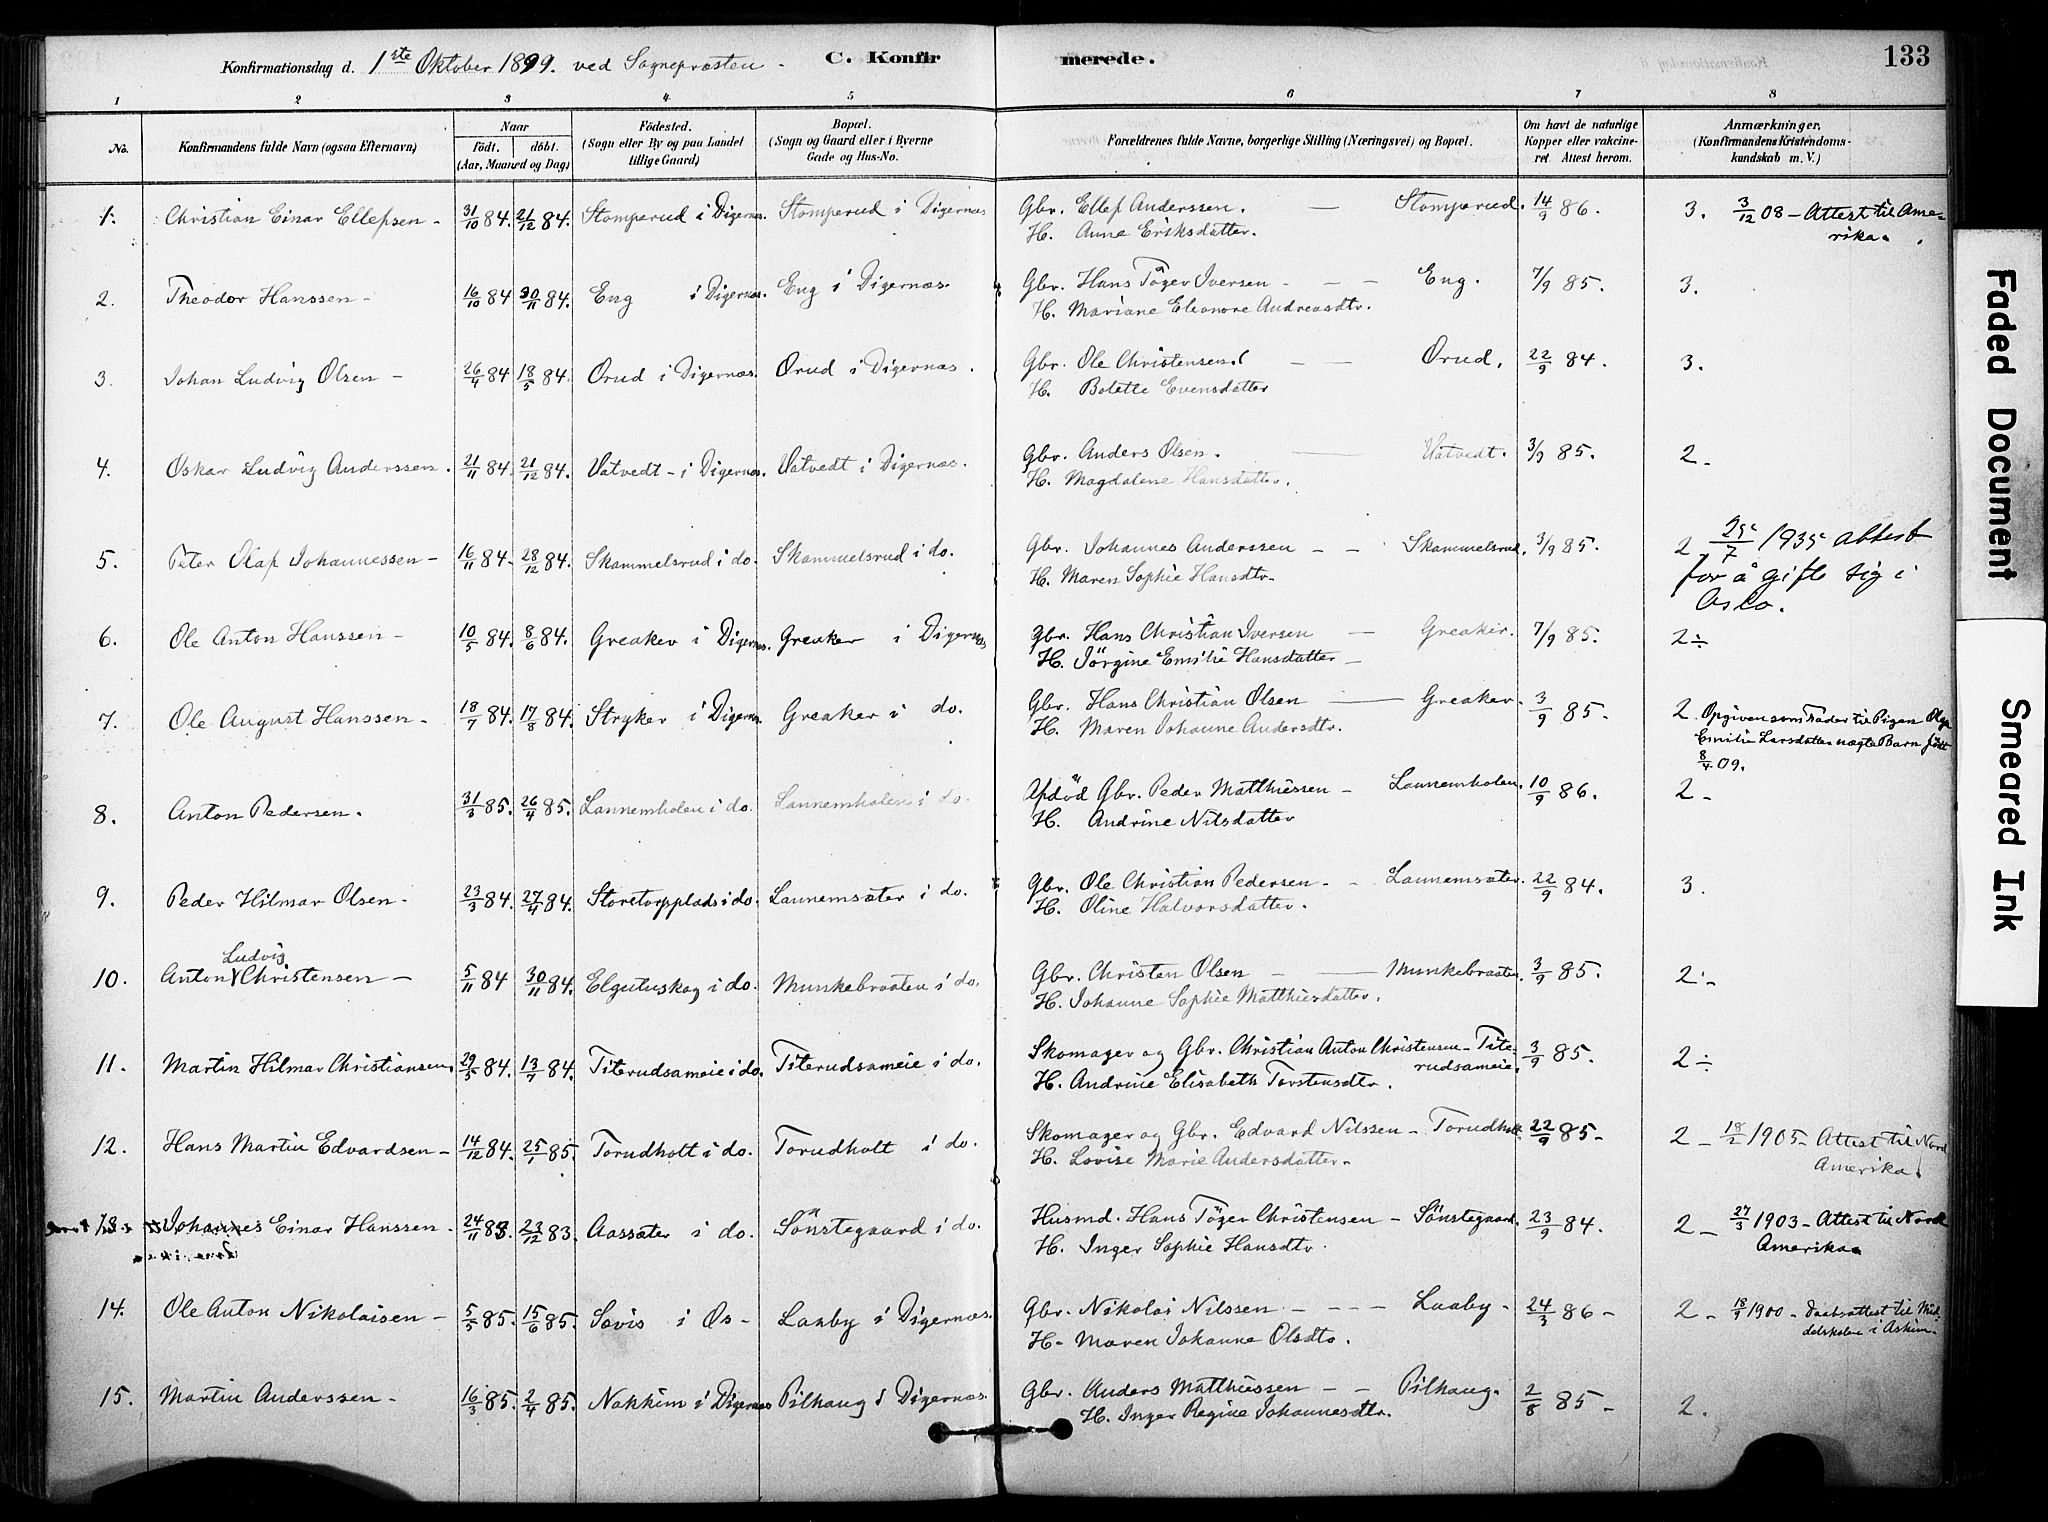 Konfirmationsdag d. 1ste Oktober 1899. ved Sognepræsten - C. Konfir merede. 133
1 2 3 4 5 6 7 8
No. Konfirmandens fulde Navn (ogsaa Efternavn) Naar födt. döbt. (Aar, Maaned og Dag) Födested. (Sogn eller By og paa Landet tillige Gaard) Bopæl. (Sogn og Gaard eller i Byerne Gade og Hus-No. Forældrenes fulde Navne, borgerlige Stilling (Næringsvei) og Bopæl. Om havt de naturlige Kopper eller vakcineret. Attest herom. Anmærkninger. (Konfirmandens Kristendomskundskab m. V.)
1. Christian Einar Ellefsen - 31/10 84. 21/12 84. Stomperud i Digernæs. Stomperud i Digernæs Gbr. Ellef Anderssen. — Stomperud. 14/9 86. 3. 3/12 08 - Attest til Ame-
H. Anne Eriksdatter. rika.
2. Theodor Hanssen - 16/10 84 30/11 84. Eng i Digernæs. Eng i Digernæs. Gbr. Hans Töger Iversen - - - Eng. 7/9 85. 3.
H. Mariane Eleonore Andreasdtr.
3. Johan Ludvig Olsen - 26/4 84 18/5 84. Ørud i Digernæs. Ørud i Digernæs. Gbr. Ole Christensen. — — Ørud. 22/9 84. 3.
H. Bolette Evensdatter
4. Oskar Ludvig Anderssen. 21/11 84. 21/12 84. Vatvedt - i Digernæs. Vatvedt i Digernæs. Gbr. Anders Olsen. — Vatvedt. 3/9 85. 2 -
H. Magdalene Hansdatter.
5. Peter Olaf Johannessen - 16/11 84. 28/12 84. Skammelsrud i do. Skammelsrud i do. Gbr. Johannes Anderssen - - Skammelsrud. 3/9 85. 2 25/7 1935 attest
H. Maren Sophie Hansdtr. for å gifte sig i
Oslo.
6. Ole Anton Hanssen - 10/5 84. 8/6 84. Greaker i Digernæs. Greaker i Digernæs Gbr. Hans Christian Iversen — Greaker. 7/9 85. 2÷
H. Jörgine Emilie Hansdatter -
7. Ole August Hanssen - 18/7 84. 17/8 84. Stryker i Digernæs. Greaker i do. Gbr. Hans Christian Olsen — Greaker. 3/9 85. 2 Opgiven som Fader til Pigen Olga
H. Maren Johanne Andersdtr. Emilie Larsdatters uægte Barn født
8/4 09.
8. Anton Pedersen. 31/3 85. 26/4 85. Lannemholen i do. Lannemholen i do. Afdöd Gbr. Peder Matthiessen - Lannemholen. 10/9 86. 2 -
H. Andrine Nilsdatter
9. Peder Hilmar Olsen - 23/3 84. 27/4 84. Storetorpplads i do. Lannemsæter i do. Gbr. Ole Christian Pedersen - - Lannemsæter. 22/9 84. 3.
H. Oline Halvorsdatter.
Ludvig
10. Anton Christensen - 5/11 84 30/11 84. Elgutuskog i do. Munkebraaten i do. Gbr. Christen Olsen - — Munkebraaten. 3/9 85. 2 -
H. Johanne Sophie Matthiesdatter.
11. Martin Hilmar Christiansen. 29/5 84. 13/7 84. Titerudsameie i do. Titerudsameie i do. Skomager og Gbr. Christian Anton Christensen - Tite- 3/9 85. 2÷
H. Andrine Elisabeth Torstensdtr. rudsameie.
12. Hans Martin Edvardsen - 14/12 84. 25/1 85. Torudholt i do. Torudholt i do. Skomager og Gbr. Edvard Nilssen - Torudholt. 22/9 85 - 2 - 18/2 1905 - Attest til Nord
H. Lovise Marie Andersdatter - Amerika
13. Johannes Einar Hanssen - 24/11 83. 23/12 83. Aassæter i do. Sönstegaard i do. Husmd. Hans Töger Christensen - Sönstegaard. 23/9 84. 2 - 27/3 1903 - Attest til Nord
H. Inger Sophie Hansdtr. Amerika
14. Ole Anton Nikolaisen - 5/5 85. 15/6 85. Sævis i Øs - Laaby i Digernæs. Gbr. Nikolai Nilssen - - - - Laaby - 24/3 86 - 2 - 18/9 1900 - Daabsattest til Mid-
H. Maren Johanne Olsdtr. delskolen i Askim -
15. Martin Anderssen - 16/3 85. 2/4 85. Nakkim i Digernæs Pilhaug i Digernæs. Gbr. Anders Matthiessen - - Pilhaug. 2/8 85 - 2.
H. Inger Regine Johannesdtr.
Faded Document
Smeared Ink